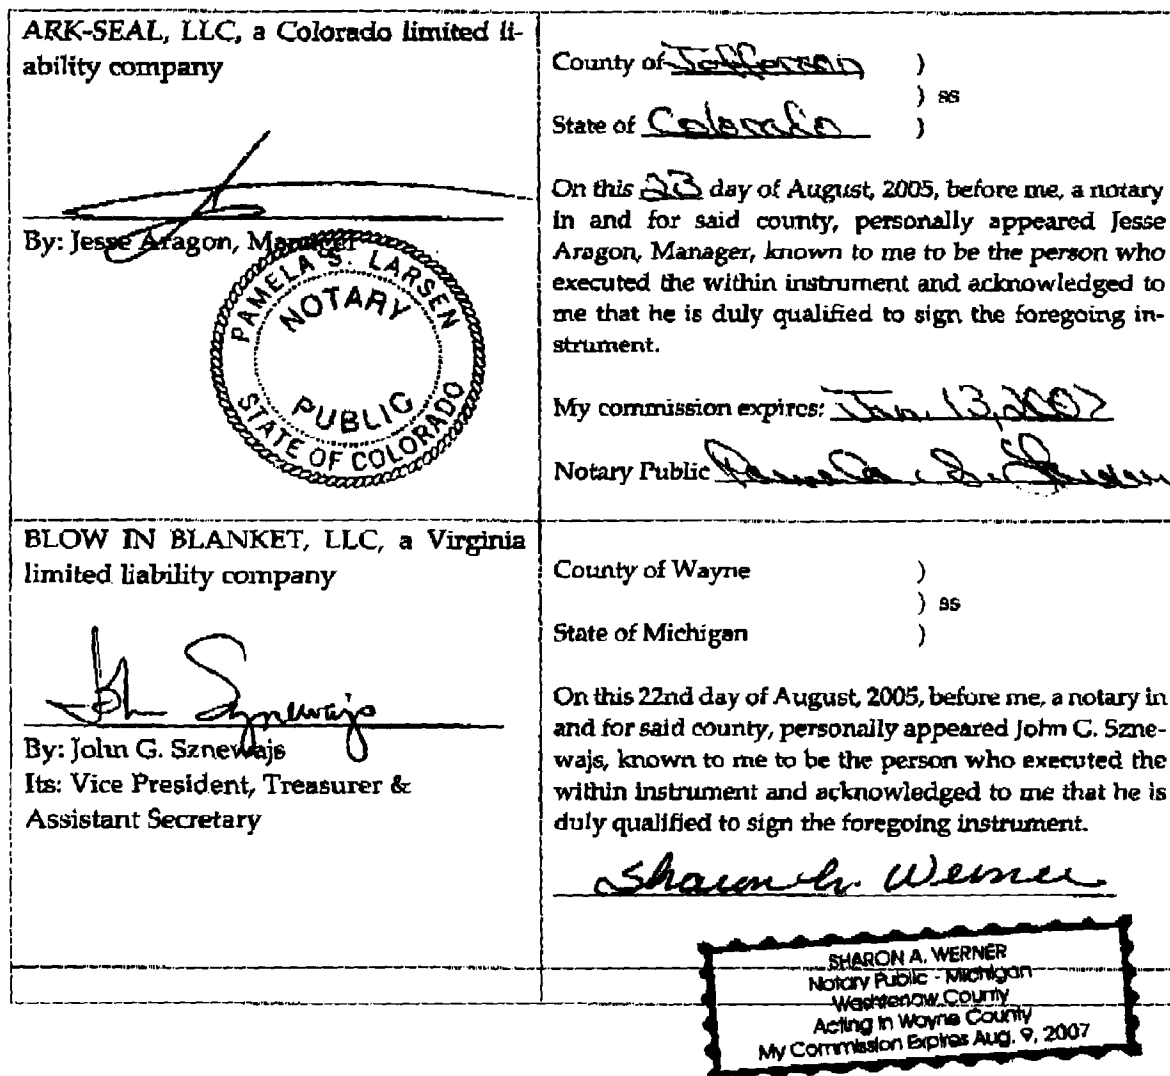 ARK-SEAL, LLC, a Colorado limited li-
ability company
By: Jesse Aragon, Manager
PAMELA S. LARSEN
NOTARY
PUBLIC
STATE OF COLORADO
County of Jefferson )
) ss
State of Colorado )
On this 23 day of August, 2005, before me, a notary
in and for said county, personally appeared Jesse
Aragon, Manager, known to me to be the person who
executed the within instrument and acknowledged to
me that he is duly qualified to sign the foregoing in-
strument.
My commission expires: Jan. 13, 2007
Notary Public Pamela S. Larsen
BLOW IN BLANKET, LLC, a Virginia
limited liability company
John Sznewajs
By: John G. Sznewajs
Its: Vice President, Treasurer &
Assistant Secretary
County of Wayne )
) ss
State of Michigan )
On this 22nd day of August, 2005, before me, a notary in
and for said county, personally appeared John G. Szne-
wajs, known to me to be the person who executed the
within instrument and acknowledged to me that he is
duly qualified to sign the foregoing instrument.
Sharon A. Werner
SHARON A. WERNER
Notary Public - Michigan
Washtenaw County
Acting in Wayne County
My Commission Expires Aug. 9, 2007